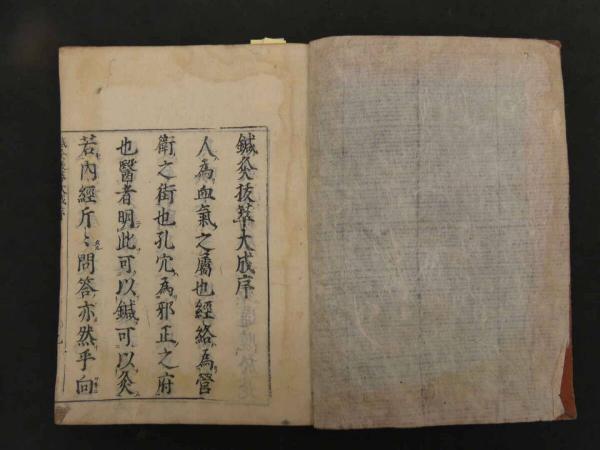 鍼灸抜萃大成序
人為血氣之屬也經絡為營
衛之街也孔穴為邪正之府
也醫者明此可以鍼可以灸
若內經斤〻問答亦然乎向